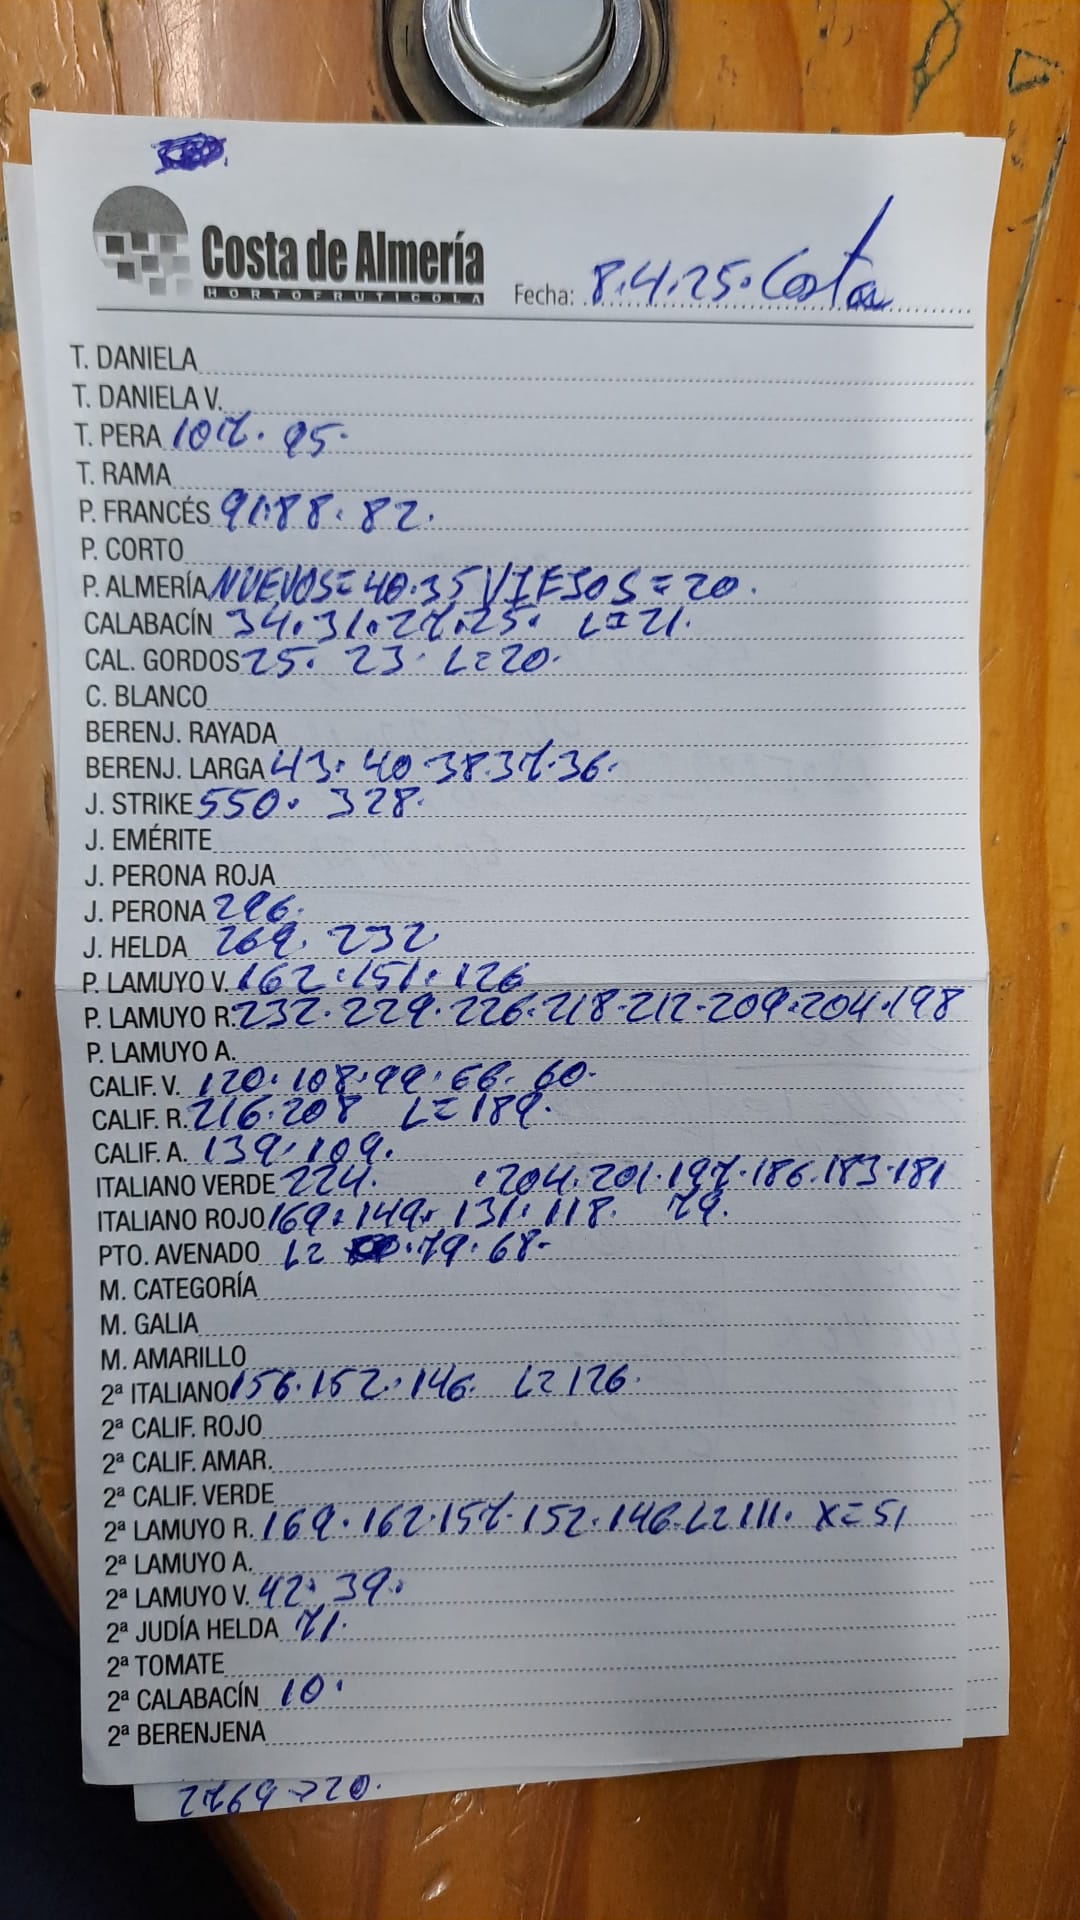 Costa de Almería
HORTOFRUTICOLA
Fecha: 8.4.25. Costa
T. DANIELA
T. DANIELA V.
T. PERA 107. 95.
T. RAMA
P. FRANCÉS 91.88. 82.
P. CORTO
P. ALMERÍA NUEVOS=40.35 VIEJOS=20.
CALABACÍN 34.31.27.25. L=21.
CAL. GORDOS 25. 23. L=20.
C. BLANCO
BERENJ. RAYADA
BERENJ. LARGA 43. 40 38.37.36.
J. STRIKE 550. 328.
J. EMÉRITE
J. PERONA ROJA
J. PERONA 296.
J. HELDA 269. 232.
P. LAMUYO V. 162.151.126
P. LAMUYO R. 232.229.226.218.212.209.204.198
P. LAMUYO A.
CALIF. V. 120.108.99.66. 60.
CALIF. R. 216.208 L=189.
CALIF. A. 139.109.
ITALIANO VERDE 224. .204.201.197.186.183.181
ITALIANO ROJO 169.149.131.118. 79.
PTO. AVENADO L= .79.68.
M. CATEGORÍA
M. GALIA
M. AMARILLO
2ª ITALIANO 156.152.146. L=126.
2ª CALIF. ROJO
2ª CALIF. AMAR.
2ª CALIF. VERDE
2ª LAMUYO R. 169.162.157.152.146.L=111. X=51
2ª LAMUYO A.
2ª LAMUYO V. 42. 39.
2ª JUDÍA HELDA 71.
2ª TOMATE
2ª CALABACÍN 10.
2ª BERENJENA